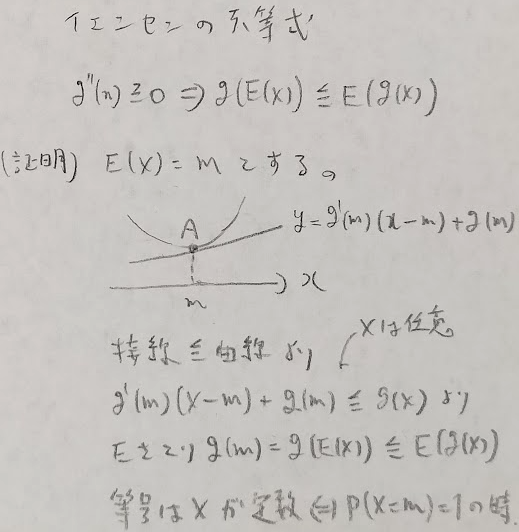 イェンセンの不等式
g''(x) ≧ 0 ⇒ g(E(X)) ≦ E(g(X))
(証明) E(X) = m とする。
A
y = g'(m)(x-m) + g(m)
x
m
Xは任意
接線 ≦ 曲線 より
g'(m)(X-m) + g(m) ≦ g(X) より
Eをとり g(m) = g(E(X)) ≦ E(g(X))
等号は X が定数 ⇔ P(X=m)=1 の時